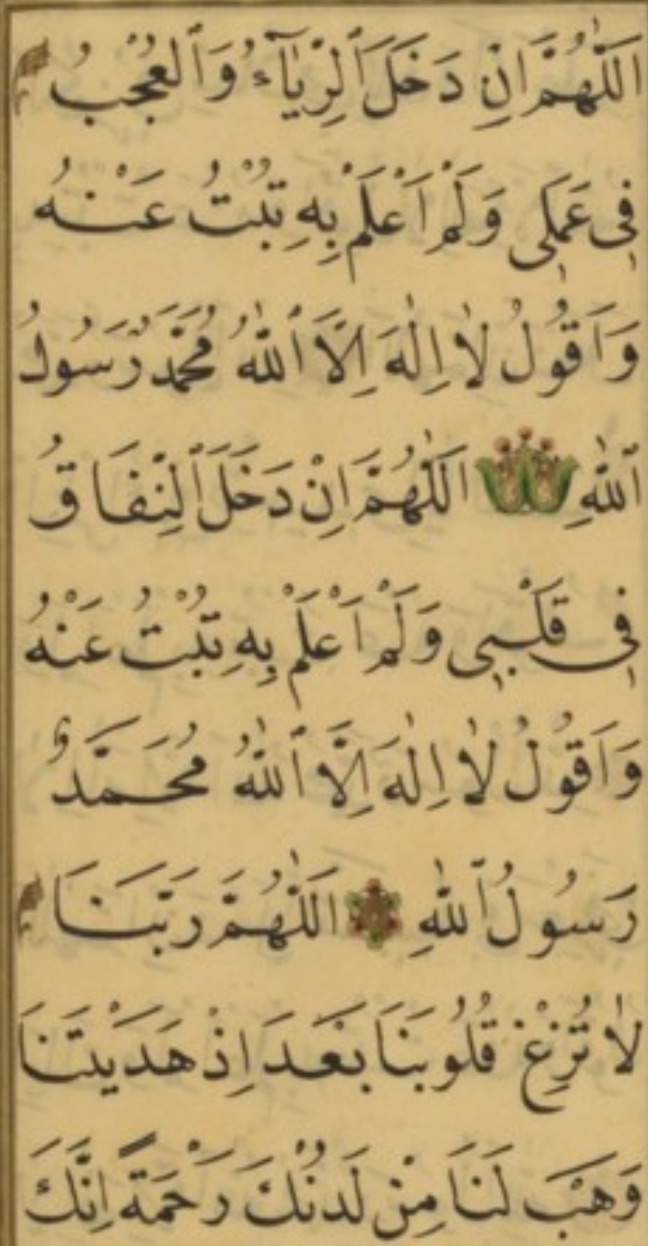 اَللّٰهُمَّ اِنْ دَخَلَ ٱلرِّيَآءُ وَٱلْعُجْبُ
فِى عَمَلِى وَلَمْ اَعْلَمْ بِهِ تُبْتُ عَنْهُ
وَاَقُولُ لَا اِلٰهَ اِلَّا ٱللّٰهُ مُحَمَّدٌ رَسُولُ
ٱللّٰهِ اَللّٰهُمَّ اِنْ دَخَلَ ٱلنِّفَاقُ
فِى قَلْبِى وَلَمْ اَعْلَمْ بِهِ تُبْتُ عَنْهُ
وَاَقُولُ لَا اِلٰهَ اِلَّا ٱللّٰهُ مُحَمَّدٌ
رَسُولُ ٱللّٰهِ اَللّٰهُمَّ رَبَّنَا
لَا تُزِغْ قُلُوبَنَا بَعْدَ اِذْ هَدَيْتَنَا
وَهَبْ لَنَا مِنْ لَدُنْكَ رَحْمَةً اِنَّكَ